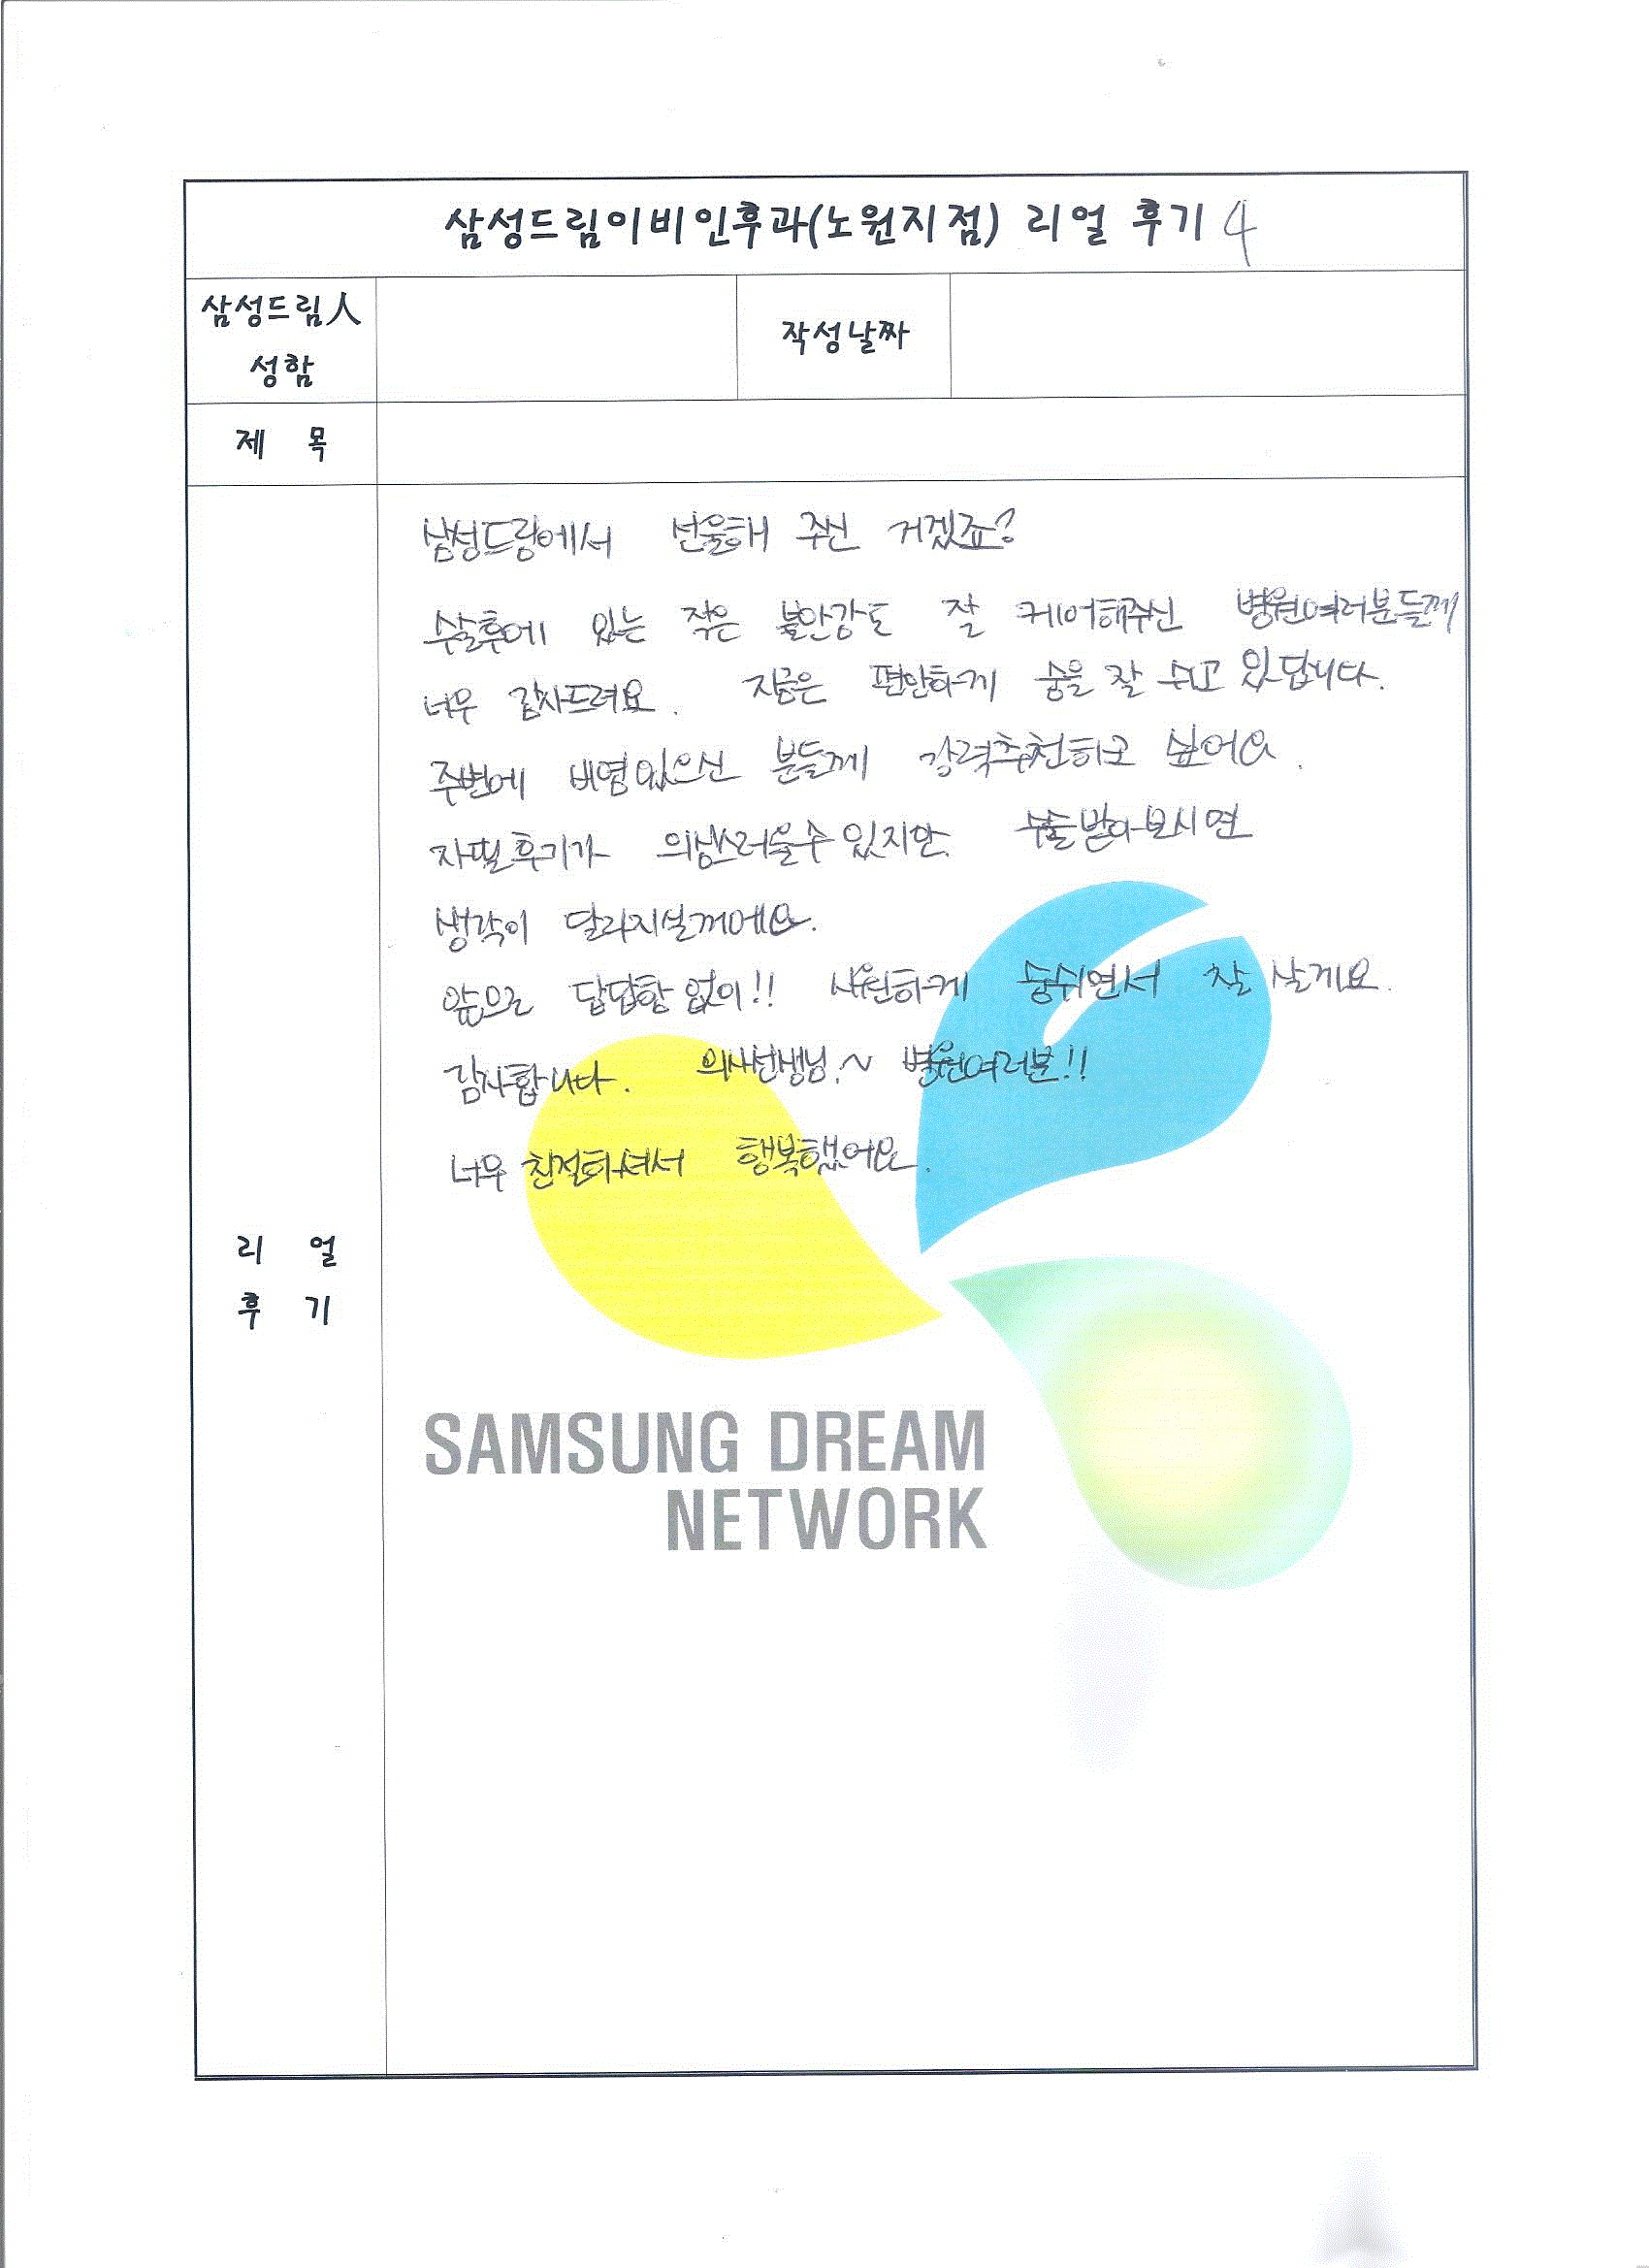 삼성드림이비인후과(노원지점) 리얼 후기 4
삼성드림人
성함
작성날짜
제 목
삼성드림에서 선물해 주신 거겠죠?
수술후에 있는 작은 불안감도 잘 케어해주신 병원여러분들께
너무 감사드려요. 지금은 편안하게 숨을 잘 쉬고 있답니다.
주변에 비염있으신 분들께 강력추천하고 싶어요.
자필후기가 의심스러울수 있지만. 수술받아보시면
생각이 달라지실꺼에요.
앞으로 답답함 없이!! 시원하게 숨쉬면서 잘 살게요.
감사합니다. 의사선생님.~ 병원여러분!!
너무 친절하셔서 행복했어요.
리 얼
후 기
SAMSUNG DREAM
NETWORK